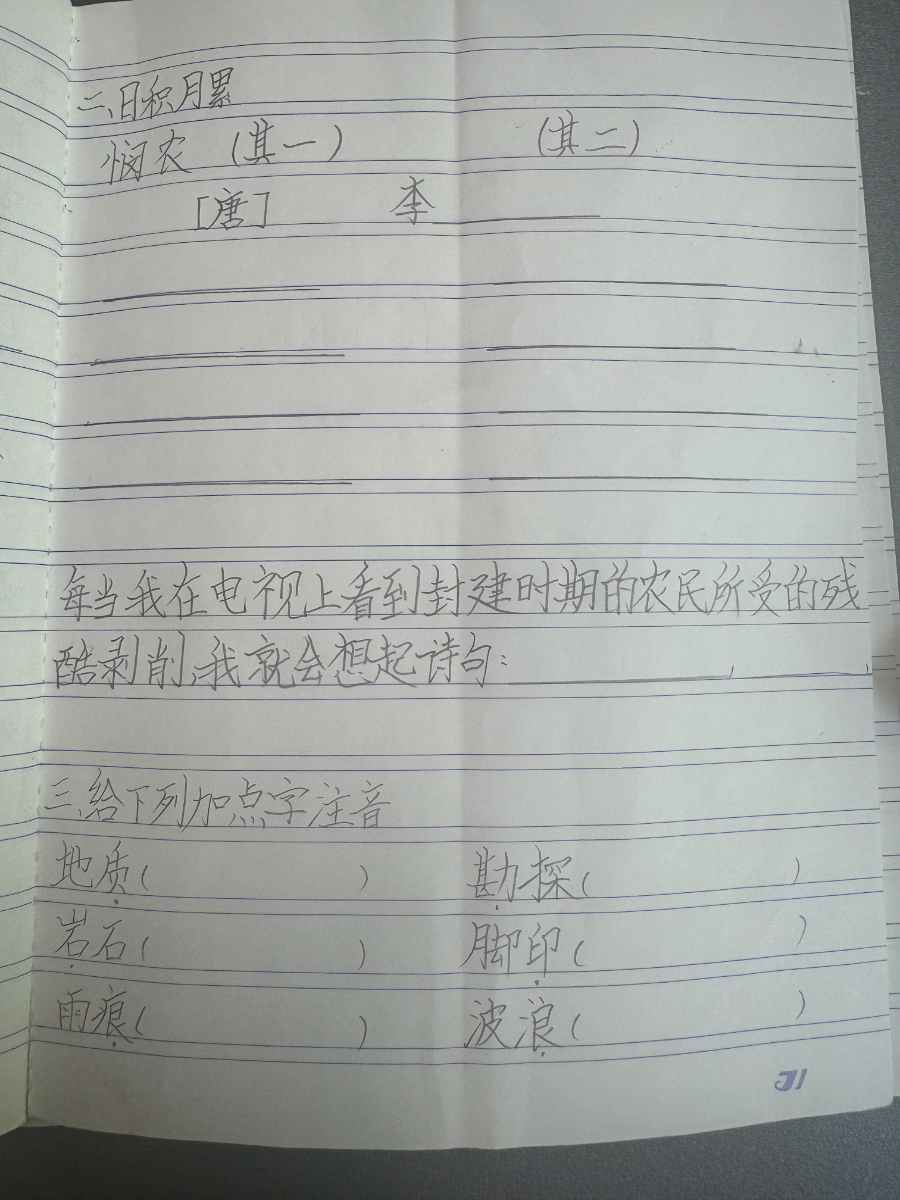 二、日积月累
悯农 (其一) (其二)
[唐] 李
每当我在电视上看到封建时期的农民所受的残
酷剥削,我就会想起诗句: ,
三、给下列加点字注音
地质( ) 勘探( )
岩石( ) 脚印( )
雨痕( ) 波浪( )